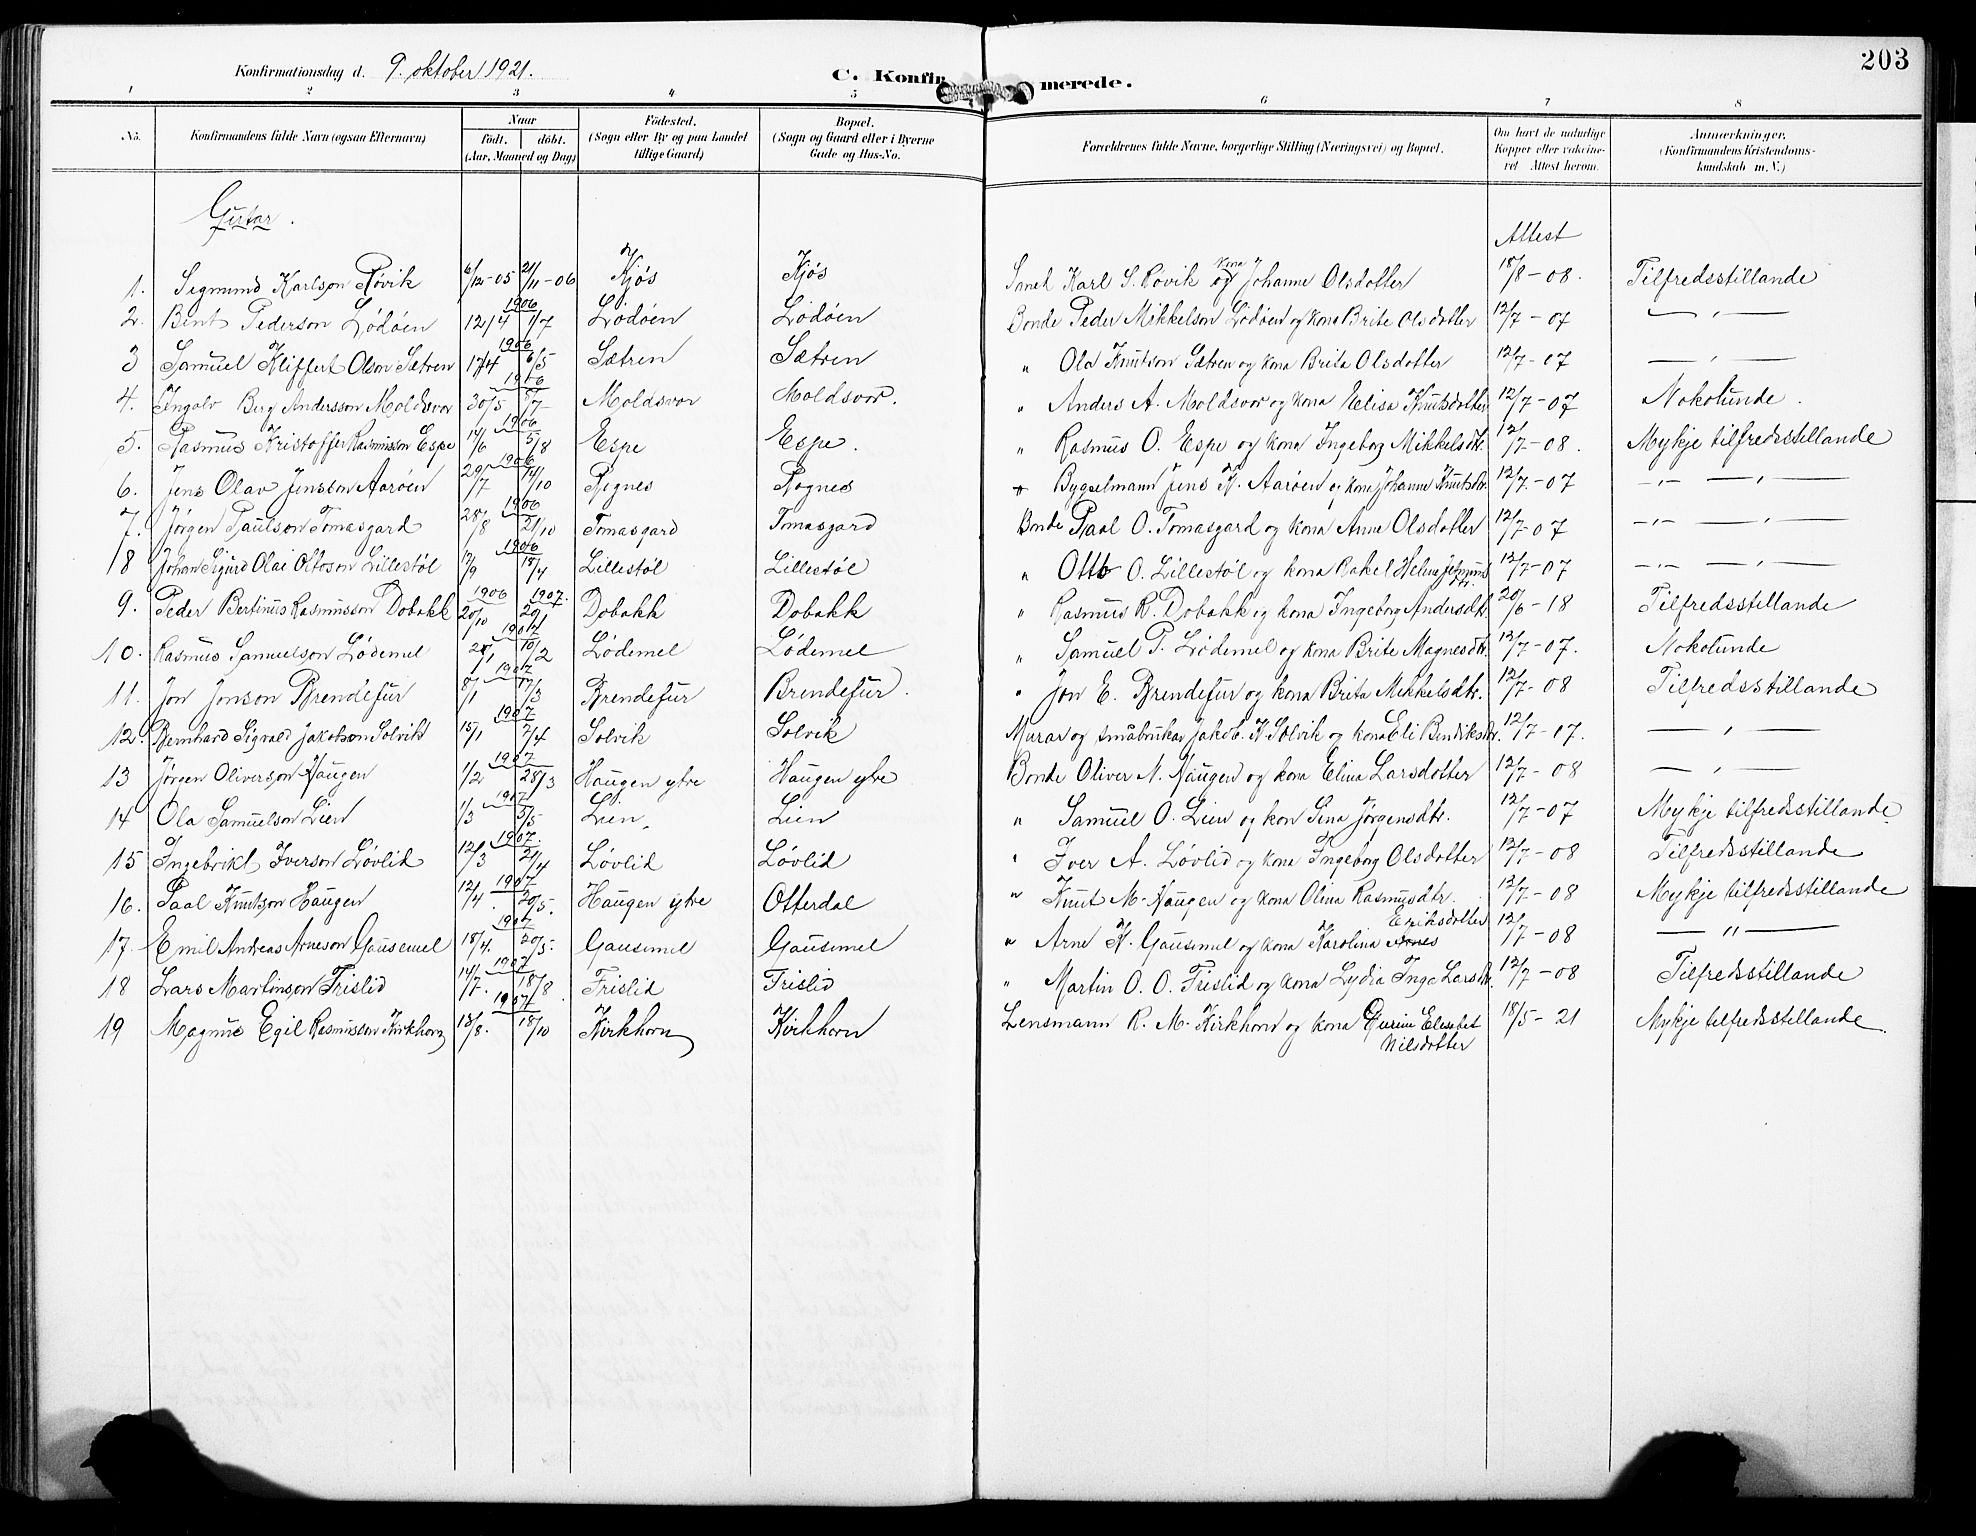 203
Konfirmationsdag d. 9. oktober 1921.
C. Konfirmerede.
1 2 3 4 5 6 7 8
No. Konfirmandens fulde Navn (ogsaa Efternavn) Naar født, døbt. (Aar, Maaned og Dag) Fødested. (Sogn eller By og paa Landet tillige Gaard) Bopæl. (Sogn og Gaard eller i Byerne Gade og Hus-No. Forældrenes fulde Navne, borgerlige Stilling (Næringsvei) og Bopæl. Om havt de naturlige Kopper eller vaccineret Attest herom. Anmærkninger. (Konfirmandens Kristendomskundskab m. V.)
Gutar.
Attest
1. Sigmund Karlson Røvik 6/12-05 21/11-06 Kjøs Kjøs Karl S. Røvik og kona Johanne Olsdotter 18/8-08. Tilfredsstillande
1906
2. Bent Pederson Lødøen 12/4 1/7 Lødøen Lødøen Bonde Peder Mikkelson Lødøen og kona Brite Olsdotter 12/7-07 — " —
1906
3 Samuel Kliffert Olson Sætren 17/4 6/5 Sætren Sætren " Ola Knutson Sætren og kona Brita Olsdotter 12/7-07 — " —
1906
4. Ingolv Berg Andersson Moldsvor 30/5 8/7 Moldsvor Moldsvor. " Anders A. Moldsvor og kona Elisa Knutsdotter 12/7-07 Nokolunde.
1906
5. Rasmus Kristoffer Rasmusson Espe 14/6 5/8 Espe Espe. " Rasmus O. Espe og kona Ingeborg Mikkelsdtr. 12/7-08. Mykje tilfredsstillande
1906
6. Jens Olav Jensson Aarøen 29/7 14/10 Rognes Rognes " Bygselmann Jens K. Aarøen og kona Johanne Knutsdtr. 12/7-07 -"- — " —
1906
7. Jørgen Paulson Tomasgard 28/8 21/10 Tomasgard Tomasgard Bonde Paal O. Tomasgard og kona Anne Olsdotter 12/7-07 -"- — " —
1906
18 Johan Sigurd Olai Ottoson Lillestøl 17/9 18/4 Lillestøl Lillestøl " Otto O. Lillestøl og kona Rakel Helene 12/7-07 -"- — " —
1906 1907.
9. Peder Bertinus Rasmusson Dobakk 20/10 20/1 Dobakk Dobakk " Rasmus R. Dobakk og kona Ingeborg Andersdtr. 20/6-18 Tilfredsstillande
1907
10. Rasmus Samuelson Lødemel 10/2 Lødemel Lødemel " Samuel P. Lødemel og kona Brite Magnesdtr. 12/7-07. Nokolunde
1907
11. Jon Jonson Brendefur 8/1 17/3 Brendefur Brendefur. " Jon E. Brendefur og kona Brita Mikkelsdtr. 12/7-08 Tilfredsstillande
1907
12. Bernhard Sigvald Jakobson Solvik 15/1 7/4 Solvik Solvik Murar og småbrukar Jakob. K. Solvik og kona Eli Bendiksdtr. 12/7-17. — " —
1907
13 Jørgen Oliverson Haugen 1/2 28/3 Haugen ytre Haugen ytre Bonde Oliver N. Haugen og kona Elina Larsdotter 12/7-08 — " —
1907
14 Ola Samuelson Lien 1/3 5/5 Lien Lien " Samuel O. Lien og kon Sina Jørgensdtr. 12/7-07 Mykje tilfredsstillande
1907.
15 Ingebrikt Iverson Løvlid 12/3 21/4 Løvlid Løvlid " Iver A. Løvlid og kona Ingeborg Olsdotter 12/7-08 Tilfredsstillande
1907
16. Paal Knutson Haugen 12/4. 20/5. Haugen ytre Otterdal " Knut M. Haugen og kona Olina Rasmusdtr. 12/7-08 Mykje tilfredsstillande
1907 Eriksdotter
17. Emil Andreas Arneson Gausemel 18/4. 20/5. Gausemel Gausemel " Arne K. Gausemel og kona Karolina Arnes 12/7-08 — " —
1907
18 Lars Martinson Frislid 14/7. 18/8. Frislid Frislid " Martin O. O. Frislid og kona Lydia Inga Larsdtr. 12/7-08 Tilfredsstillande
1907.
19 Magnus Egil Rasmusson Kirkhorn 13/8. 18/10 Kirkhorn Kirkhorn Lensmann R. M. Kirkhorn og kona Elisabet 18/5-21 Mykje tilfredsstillande.
Nilsdotter